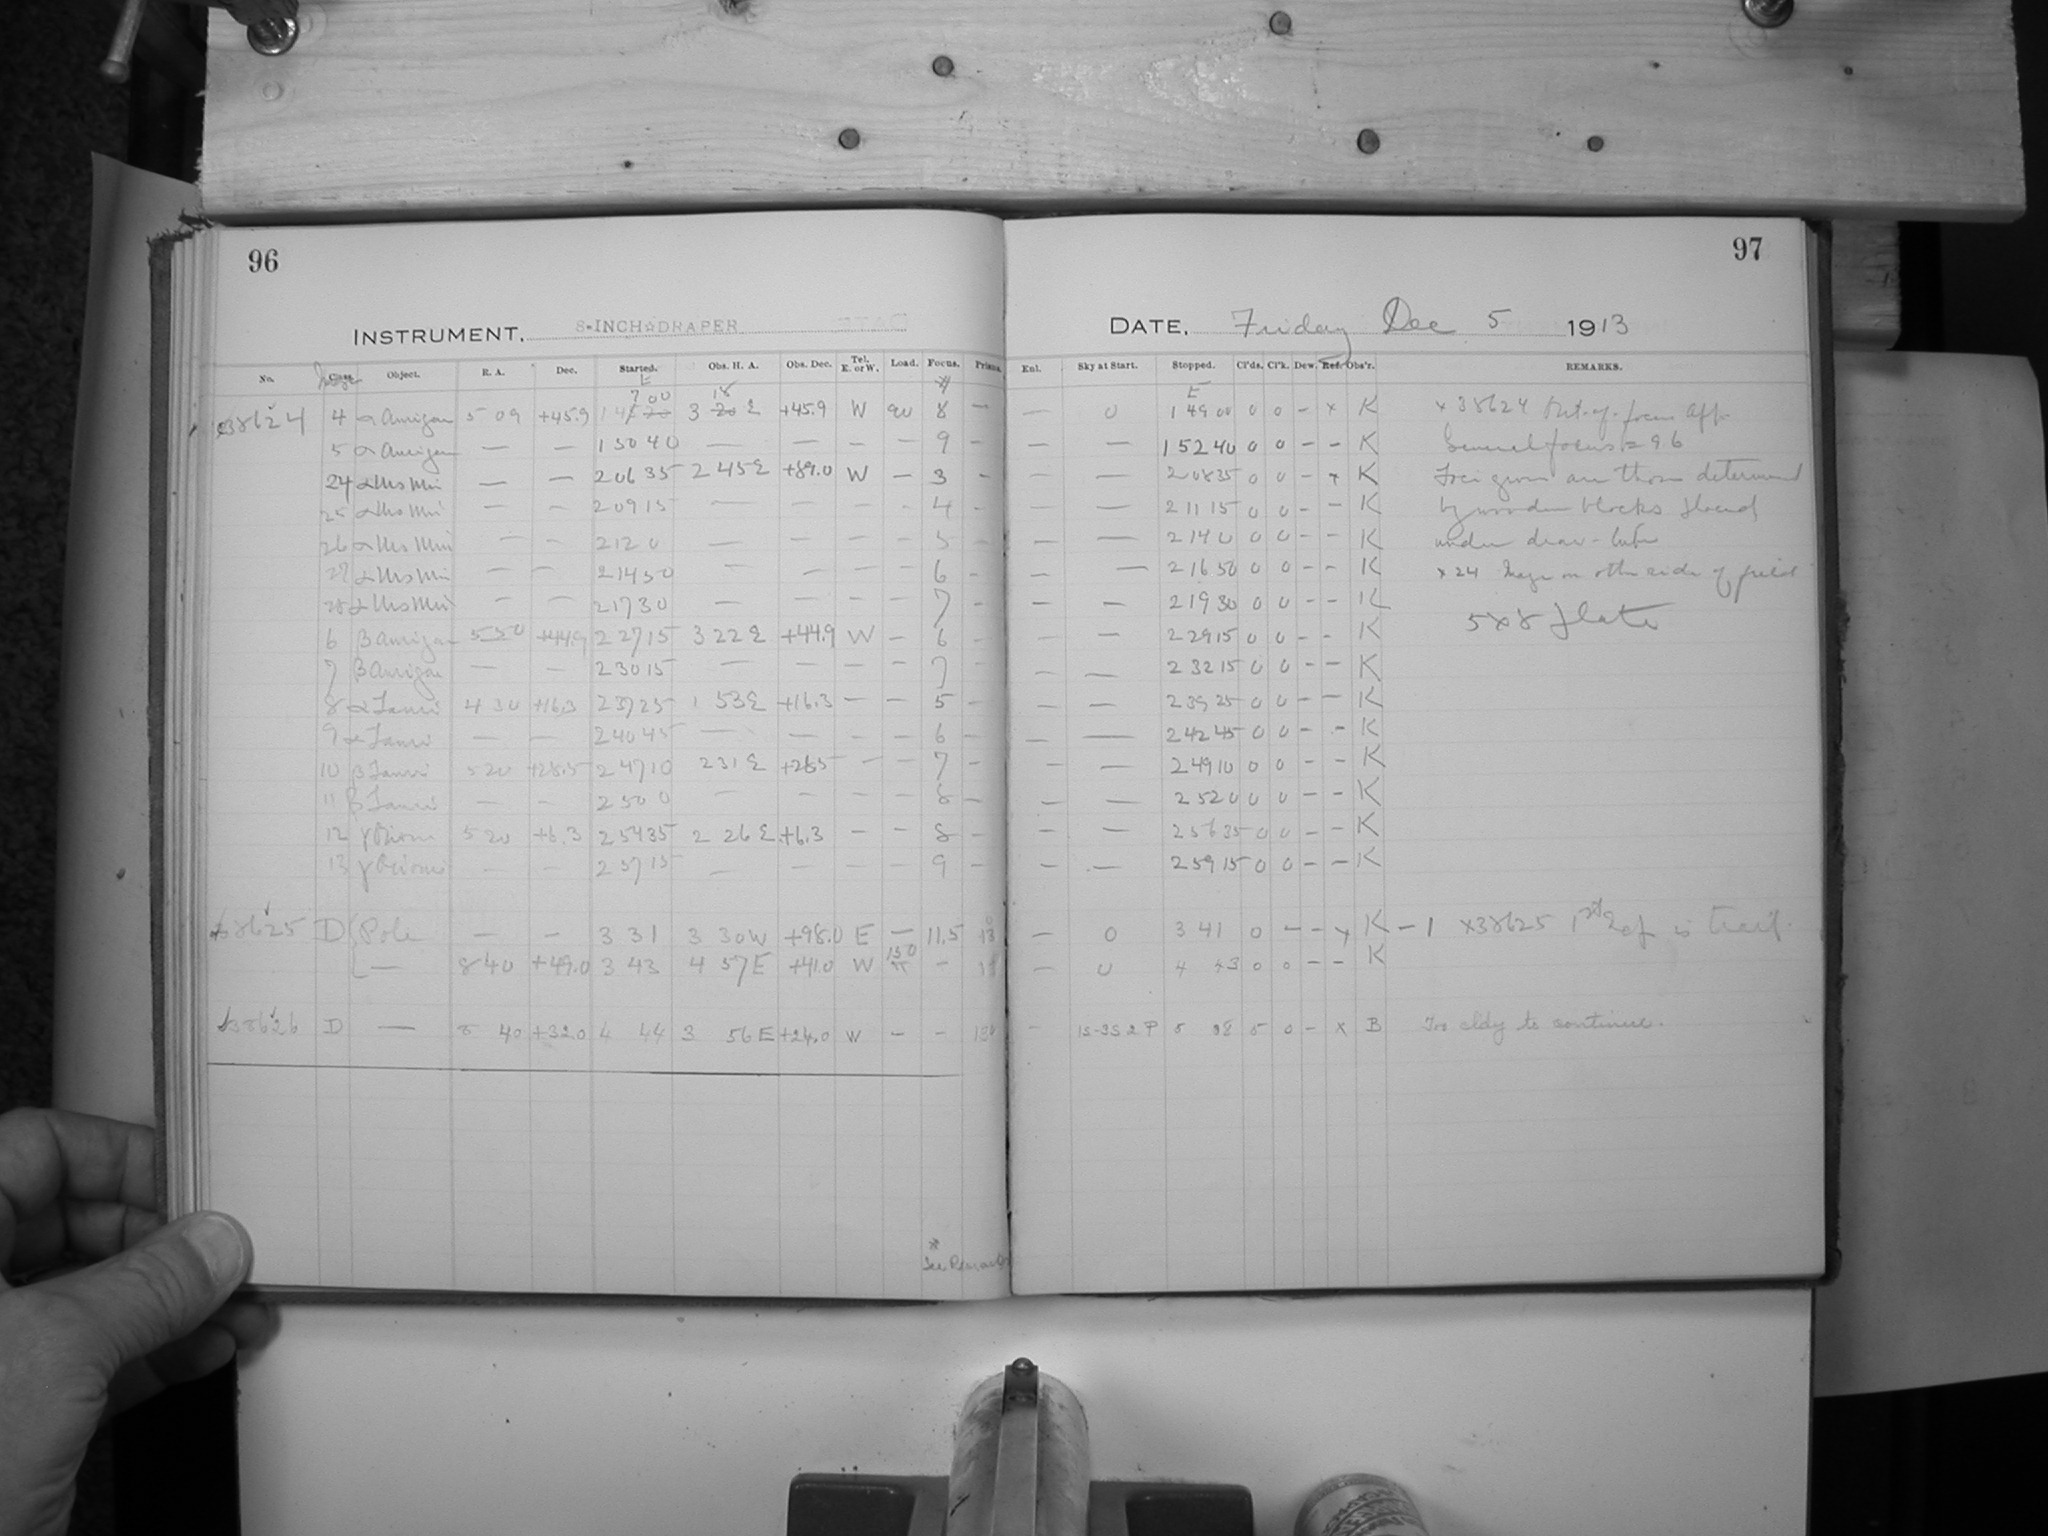 96
97
INSTRUMENT. 8-INCH DRAPER
DATE. Friday Dec 5 1913
No. Image Object. R. A. Dec. Started. Obs. H. A. Obs. Dec. Tel. E. or W. Load. Focus. Prism. Enl. Sky at Start. Stopped. Cl'ds. Cl'k. Dew. Ref. Obs'r. REMARKS.
38624 4 α Aurigae 5 09 +45.9 3 18 E +45.9 W 90 8 — — 0 1 49 00 0 0 – x K x 38624 Out-of-focus App.
5 α Aurigae — — 1 50 40 — — — — 9 — — 1 52 40 0 0 – – K General focus = 96
24 α Urs Min — — 2 06 35 2 45 E +89.0 W — 3 — — — 2 08 35 0 0 – x K Foci given are those determined
25 α Urs Min — — 2 09 15 — — — — 4 – — — 2 11 15 0 0 – – K by wooden blocks placed
26 α Urs Min — — 2 12 0 — — — — 5 – — — 2 14 0 0 0 – – K under draw-tube
27 α Urs Min — — 2 14 50 — — — — 6 – — — 2 16 50 0 0 – – K x 24 Image on other side of field
28 α Urs Min — — 2 17 30 — — — — 7 – — — 2 19 30 0 0 – – K 5x8 plate
6 β Aurigae 5 50 +44.9 2 27 15 3 22 E +44.9 W – 6 – — — 2 29 15 0 0 – – K
7 β Aurigae — — 2 30 15 — — — — 7 – — — 2 32 15 0 0 – – K
8 α Tauri 4 30 +16.3 2 37 25 1 53 E +16.3 – – 5 – — — 2 39 25 0 0 – – K
9 α Tauri — — 2 40 45 — — — — 6 – — — 2 42 45 0 0 – – K
10 β Tauri 5 20 +28.5 2 47 10 2 31 E +28.5 – – 7 – — — 2 49 10 0 0 – – K
11 β Tauri — — 2 50 0 — — — — 8 – — — 2 52 0 0 0 – – K
12 γ Orionis 5 20 +6.3 2 54 35 2 26 E +6.3 – – 8 – — — 2 56 35 0 0 – – K
13 γ Orionis — — 2 57 15 — — — — 9 – — — 2 59 15 0 0 – – K
38625 D Pole — — 3 31 3 30 W +98.0 E — 11.5 — 0 3 41 0 – – K – 1 x38625 1st is trail.
— 8 40 +49.0 3 43 4 57 E +41.0 W 150 – — 0 4 43 0 0 – – K
38626 D — 8 40 +32.0 4 44 3 56 E +24.0 W – – – 5 0 – x B Too cldy to continue.
* See Remarks